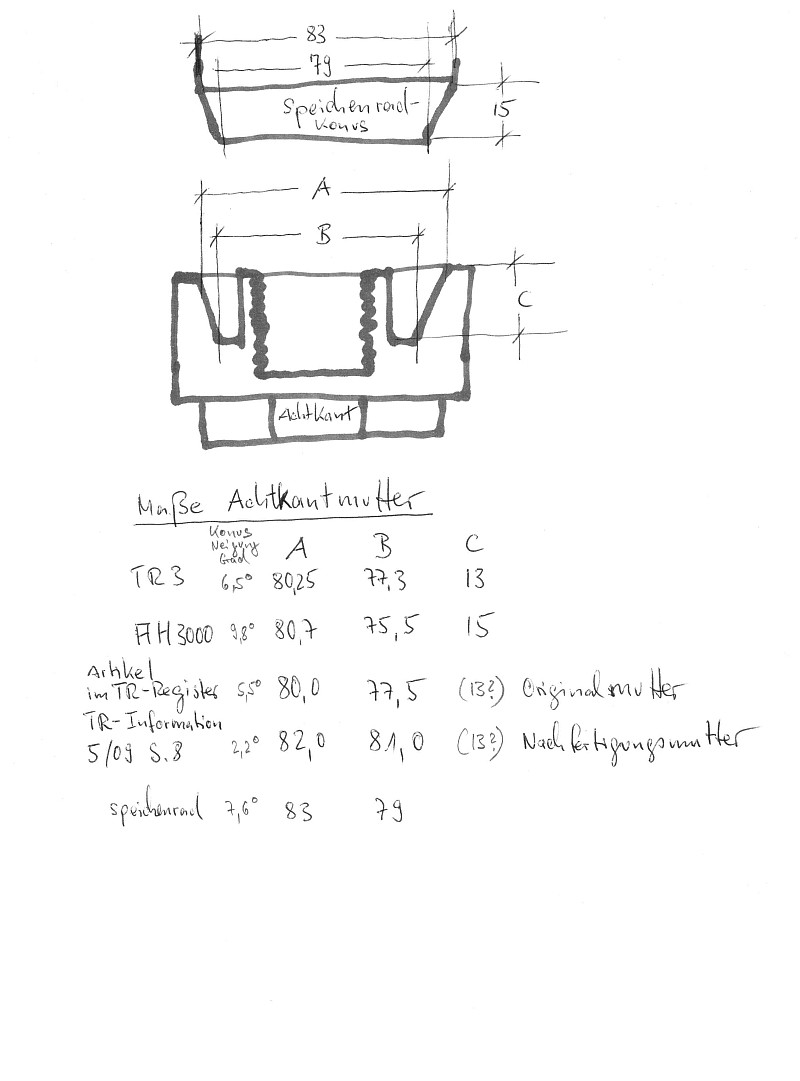 83
79
Speichenrad-
Konus
15
A
B
C
Achtkant
Maße Achtkantmutter
Konus
Neigung
Grad
A B C
TR3 6,5° 80,25 77,3 13
AH3000 9,8° 80,7 75,5 15
Artikel
im TR-Register 5,5° 80,0 77,5 (13?) Originalmutter
TR-Information
5/09 S.8 2,2° 82,0 81,0 (13?) Nachfertigungsmutter
Speichenrad 7,6° 83 79